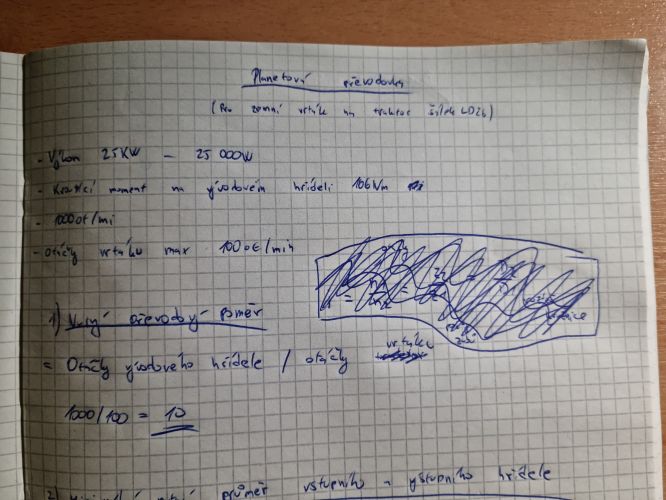 Planetová převodovka
(Pro zemní vrták na traktor
- Výkon 25KW - 25 000W
- Kroutící moment na vývodovém hřídeli 106Nm
- 1000ot/mi
- Otáčky vrtáku max 100ot/min
1) převodový poměr
= Otáčky vývodového hřídele / otáčky vrtáku
1000/100 = 10
2) průměr vstupního a výstupního hřídele